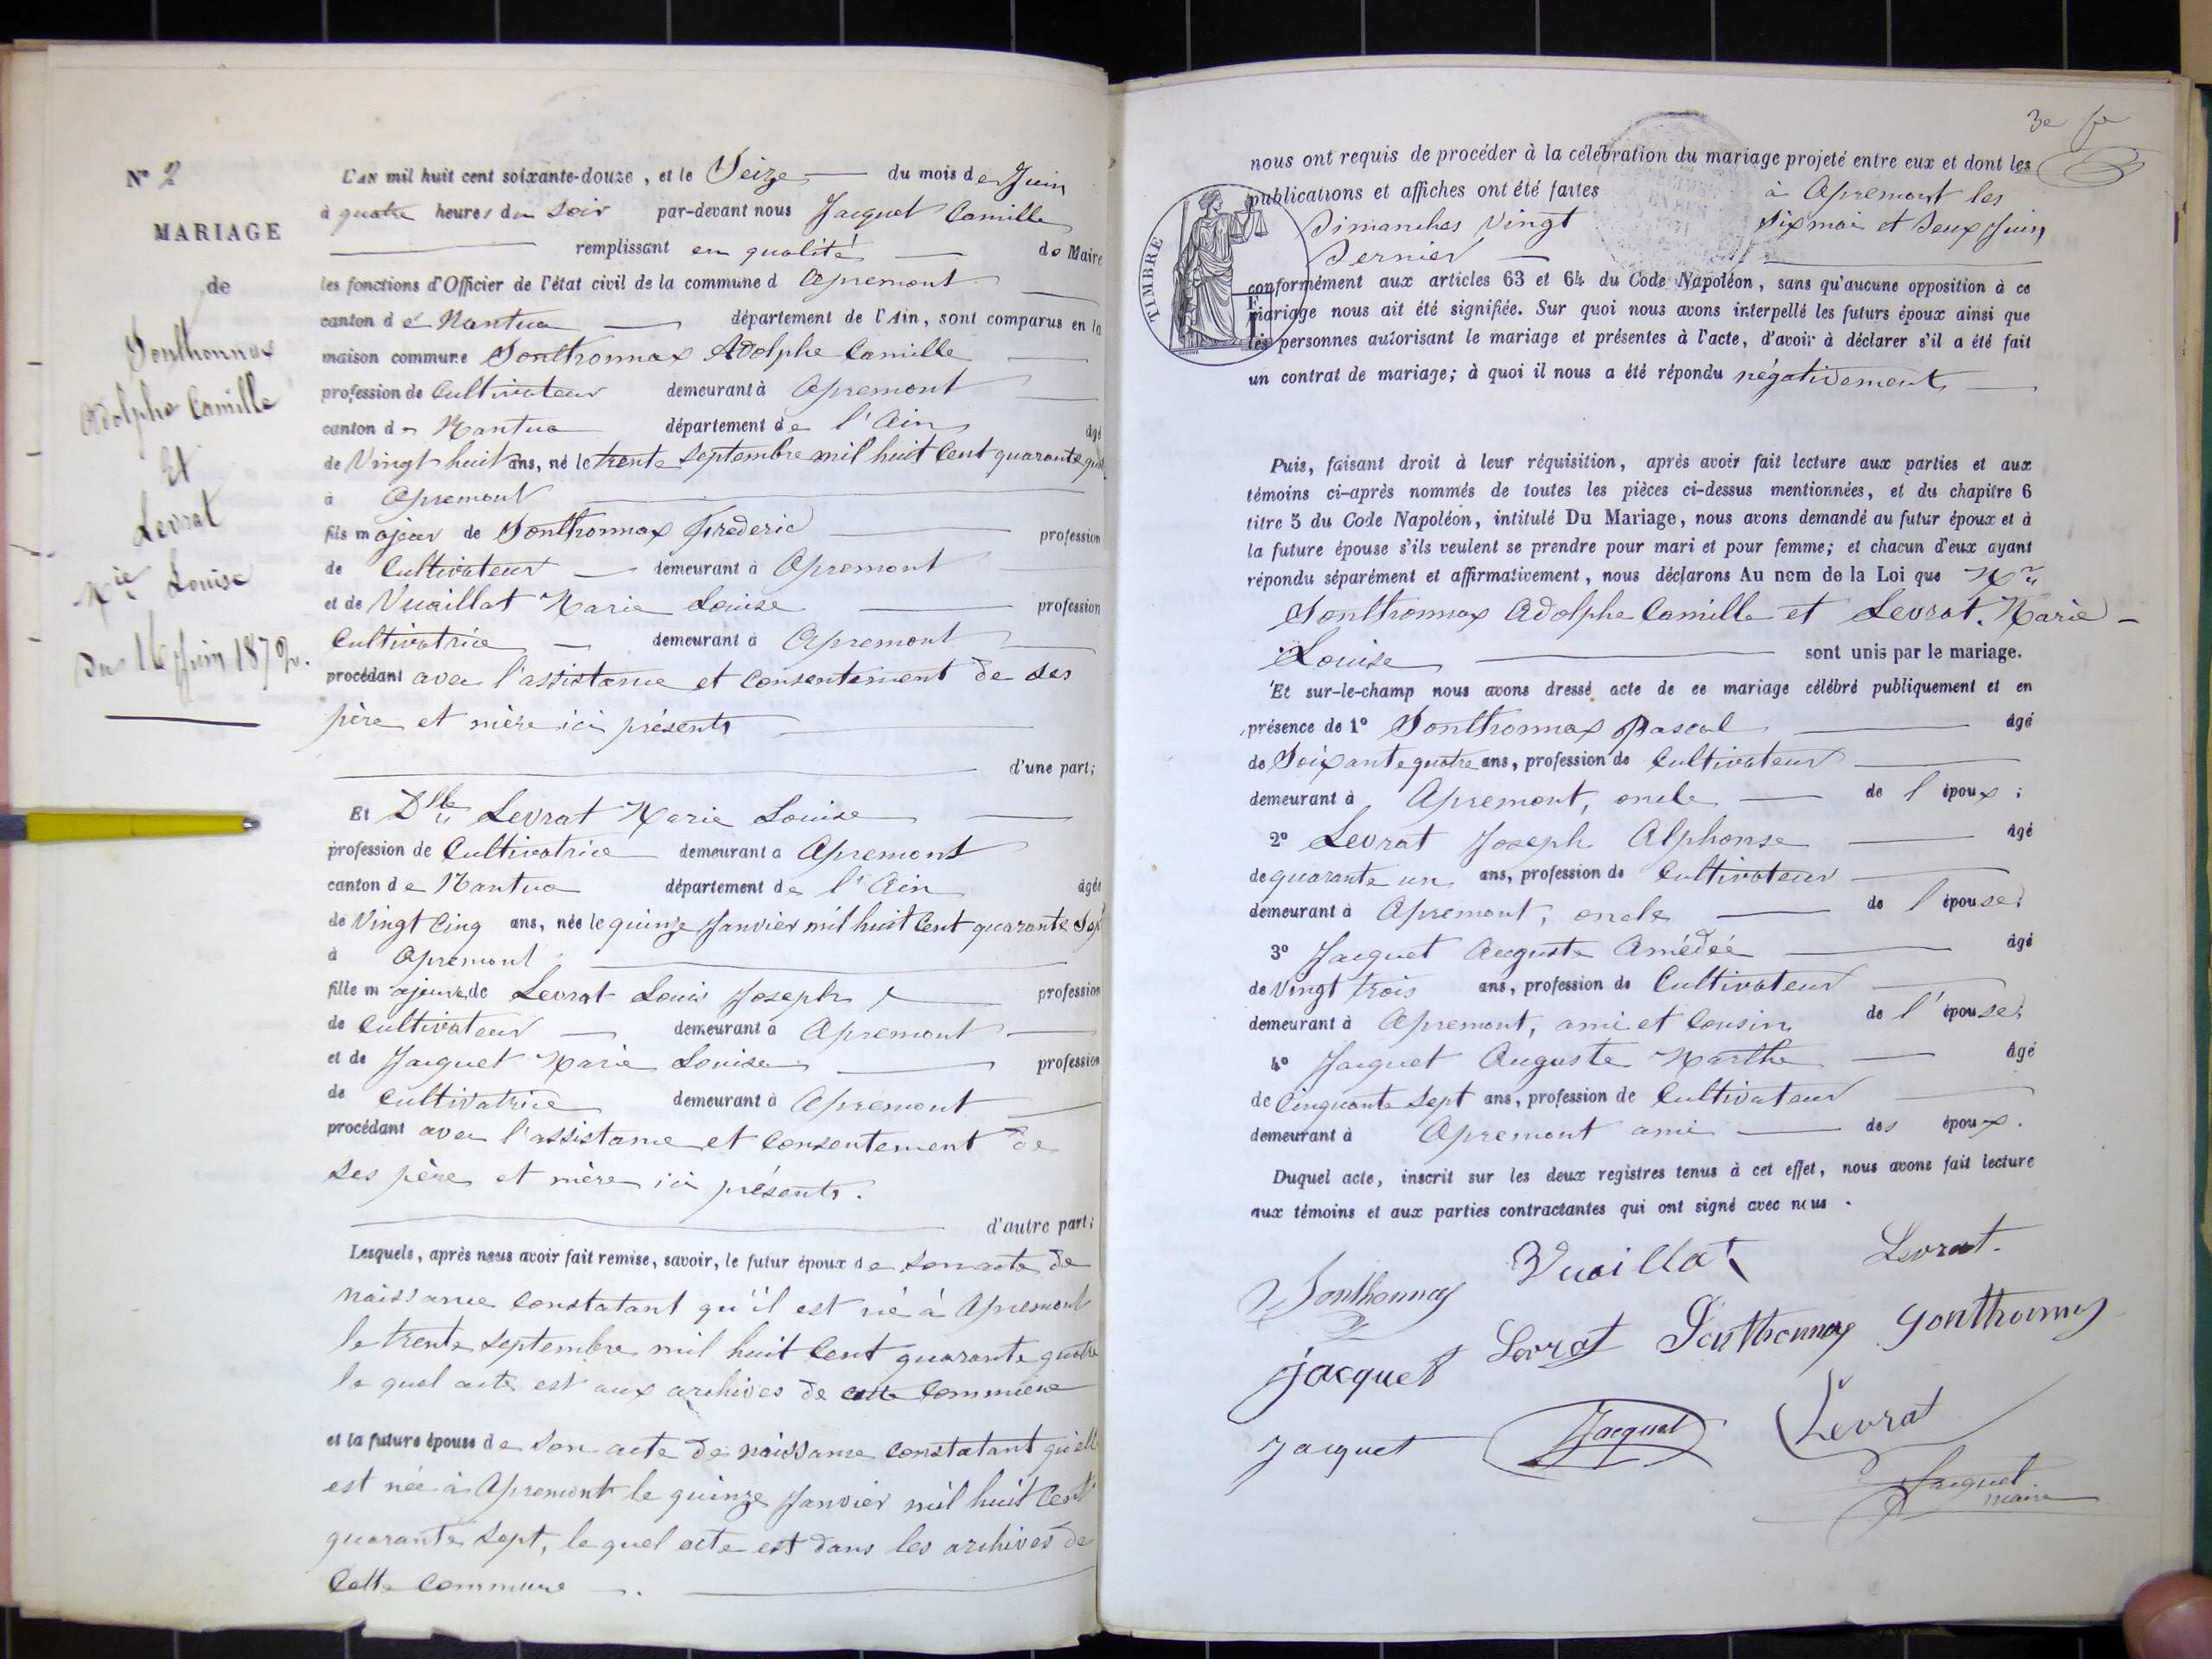 N° 2
MARIAGE
de
Sonthonnax
Adolphe Camille
Et
Levrat
Mie Louise
Du 16 Juin 1872.
L'AN mil huit cent soixante-douze, et le Seize du mois de Juin
à quatre heures du Soir par-devant nous Jacquet Camille
remplissant en qualité de Maire
les fonctions d'Officier de l'état civil de la commune d Apremont
canton de Nantua département de l'Ain, sont comparus en la
maison commune Sonthonnax Adolphe Camille
profession de Cultivateur demeurant à Apremont
canton de Nantua département de l'Ain âgé
de Vingt huit ans, né le trente Septembre mil huit Cent quarante quatre
à Apremont
fils majeur de Sonthonnax Frederic profession
de Cultivateur demeurant à Apremont
et de Vuaillat Marie Louise profession
Cultivatrice demeurant à Apremont
procédant avec l'assistance et Consentement de ses
père et mère ici présents
d'une part;
Et Dlle Levrat Marie Louise
profession de Cultivatrice demeurant à Apremont
canton de Nantua département de l'Ain âgée
de Vingt Cinq ans, née le quinze Janvier mil huit Cent quarante Sept
à Apremont
fille majeure de Levrat Louis Joseph profession
de Cultivateur demeurant à Apremont
et de Jacquet Marie Louise profession
de Cultivatrice demeurant à Apremont
procédant avec l'assistance et Consentement de
ses père et mère ici présents.
d'autre part;
Lesquels, après nous avoir fait remise, savoir, le futur époux de son acte de
naissance Constatant qu'il est né à Apremont
le trente Septembre mil huit Cent quarante quatre
le quel acte est aux archives de cette Commune
et la future épouse de son acte de naissance constatant qu'elle
est née à Apremont le quinze Janvier mil huit Cent
quarante Sept, le quel acte est dans les archives de
Cette Commune.
3e
nous ont requis de procéder à la célébration du mariage projeté entre eux et dont les
publications et affiches ont été faites à Apremont les
Dimanches Vingt Six mai et Deux Juin
Dernier
TIMBRE
conformément aux articles 63 et 64 du Code Napoléon, sans qu'aucune opposition à ce
mariage nous ait été signifiée. Sur quoi nous avons interpellé les futurs époux ainsi que
les personnes autorisant le mariage et présentes à l'acte, d'avoir à déclarer s'il a été fait
un contrat de mariage; à quoi il nous a été répondu négativement
Puis, faisant droit à leur réquisition, après avoir fait lecture aux parties et aux
témoins ci-après nommés de toutes les pièces ci-dessus mentionnées, et du chapitre 6
titre 5 du Code Napoléon, intitulé Du Mariage, nous avons demandé au futur époux et à
la future épouse s'ils veulent se prendre pour mari et pour femme; et chacun d'eux ayant
répondu séparément et affirmativement, nous déclarons Au nom de la Loi que Mr
Sonthonnax Adolphe Camille et Levrat. Marie -
Louise sont unis par le mariage.
Et sur-le-champ nous avons dressé acte de ce mariage célébré publiquement et en
présence de 1° Sonthonnax Pascal âgé
de Soixante quatre ans, profession de Cultivateur
demeurant à Apremont, oncle de l'époux;
2° Levrat Joseph Alphonse âgé
de quarante un ans, profession de Cultivateur
demeurant à Apremont, oncle de l'épouse;
3° Jacquet Auguste Amédée âgé
de Vingt trois ans, profession de Cultivateur
demeurant à Apremont, ami et Cousin de l'épouse;
4° Jacquet Auguste Marthe âgé
de Cinquante Sept ans, profession de Cultivateur
demeurant à Apremont ami des époux.
Duquel acte, inscrit sur les deux registres tenus à cet effet, nous avons fait lecture
aux témoins et aux parties contractantes qui ont signé avec nous.
Sonthonnax Vuaillat Levrat.
Jacquet Levrat Sonthonnax Sonthonnax
Jacquet Jacquet Levrat
Jacquet
maire